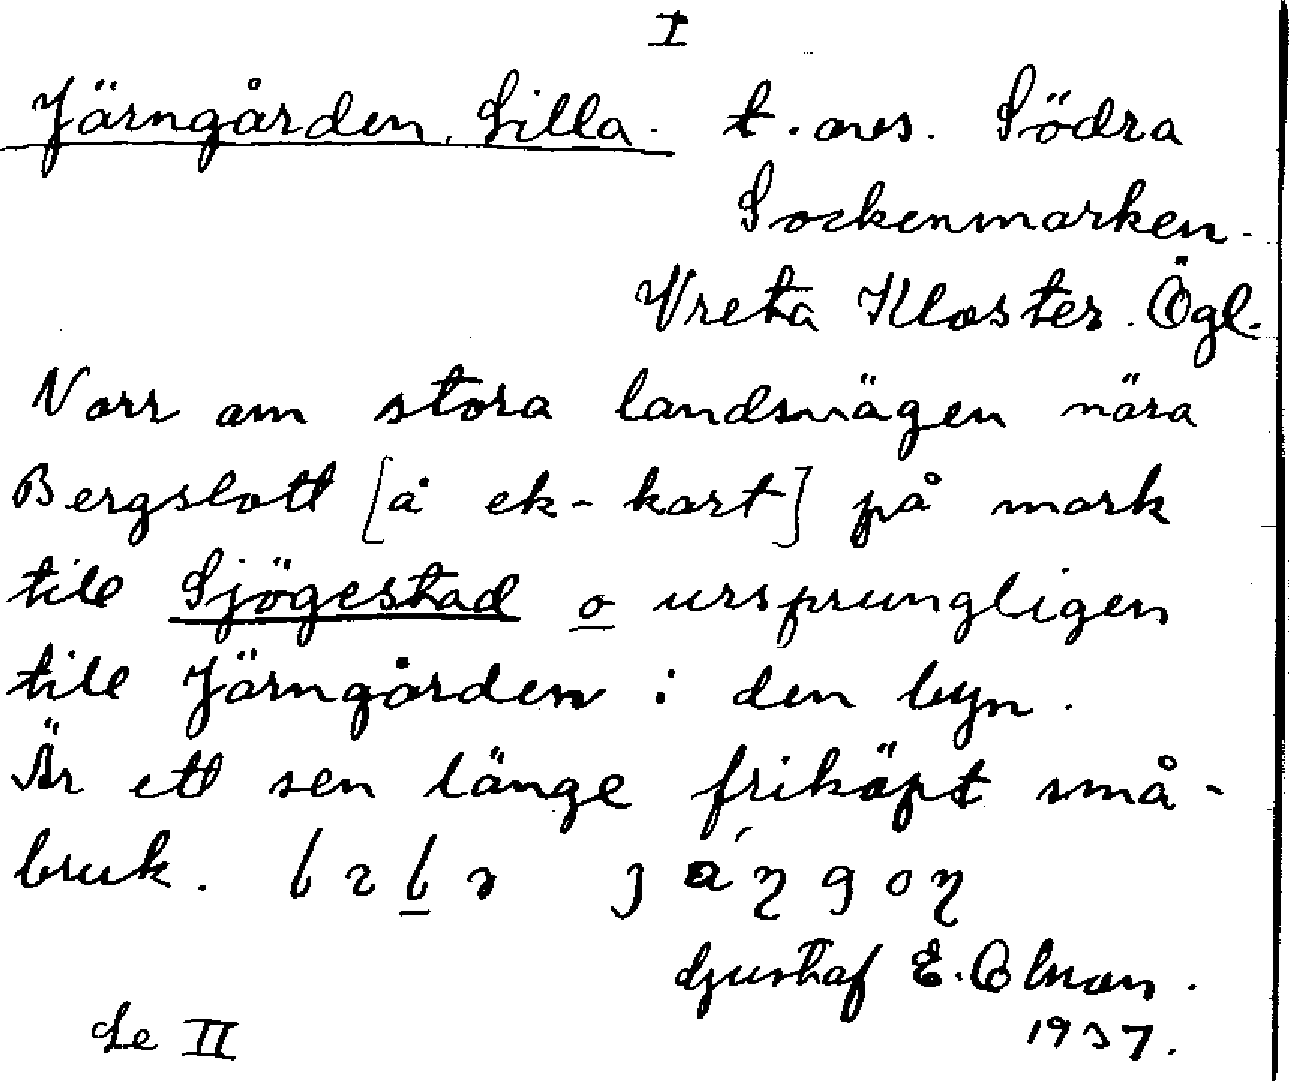 I
Järngården, Lilla. t. ons. Södra
Sockenmarken.
Vreta Kloster. Ögl.
Norr om stora landsvägen nära
Bergslott [å ek-kart] på mark
till Sjögestad o ursprungligen
till Järngården i den byn.
Är ett sen länge friköpt små-
bruk.
Gustaf E.
1937.
Se II